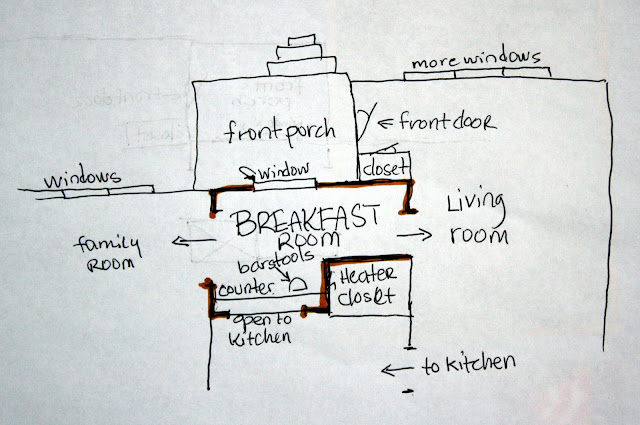 more windows
front porch
front door
window
closet
windows
BREAKFAST
ROOM
Living
room
family
ROOM
barstools
counter
Heater
closet
open to
kitchen
to kitchen